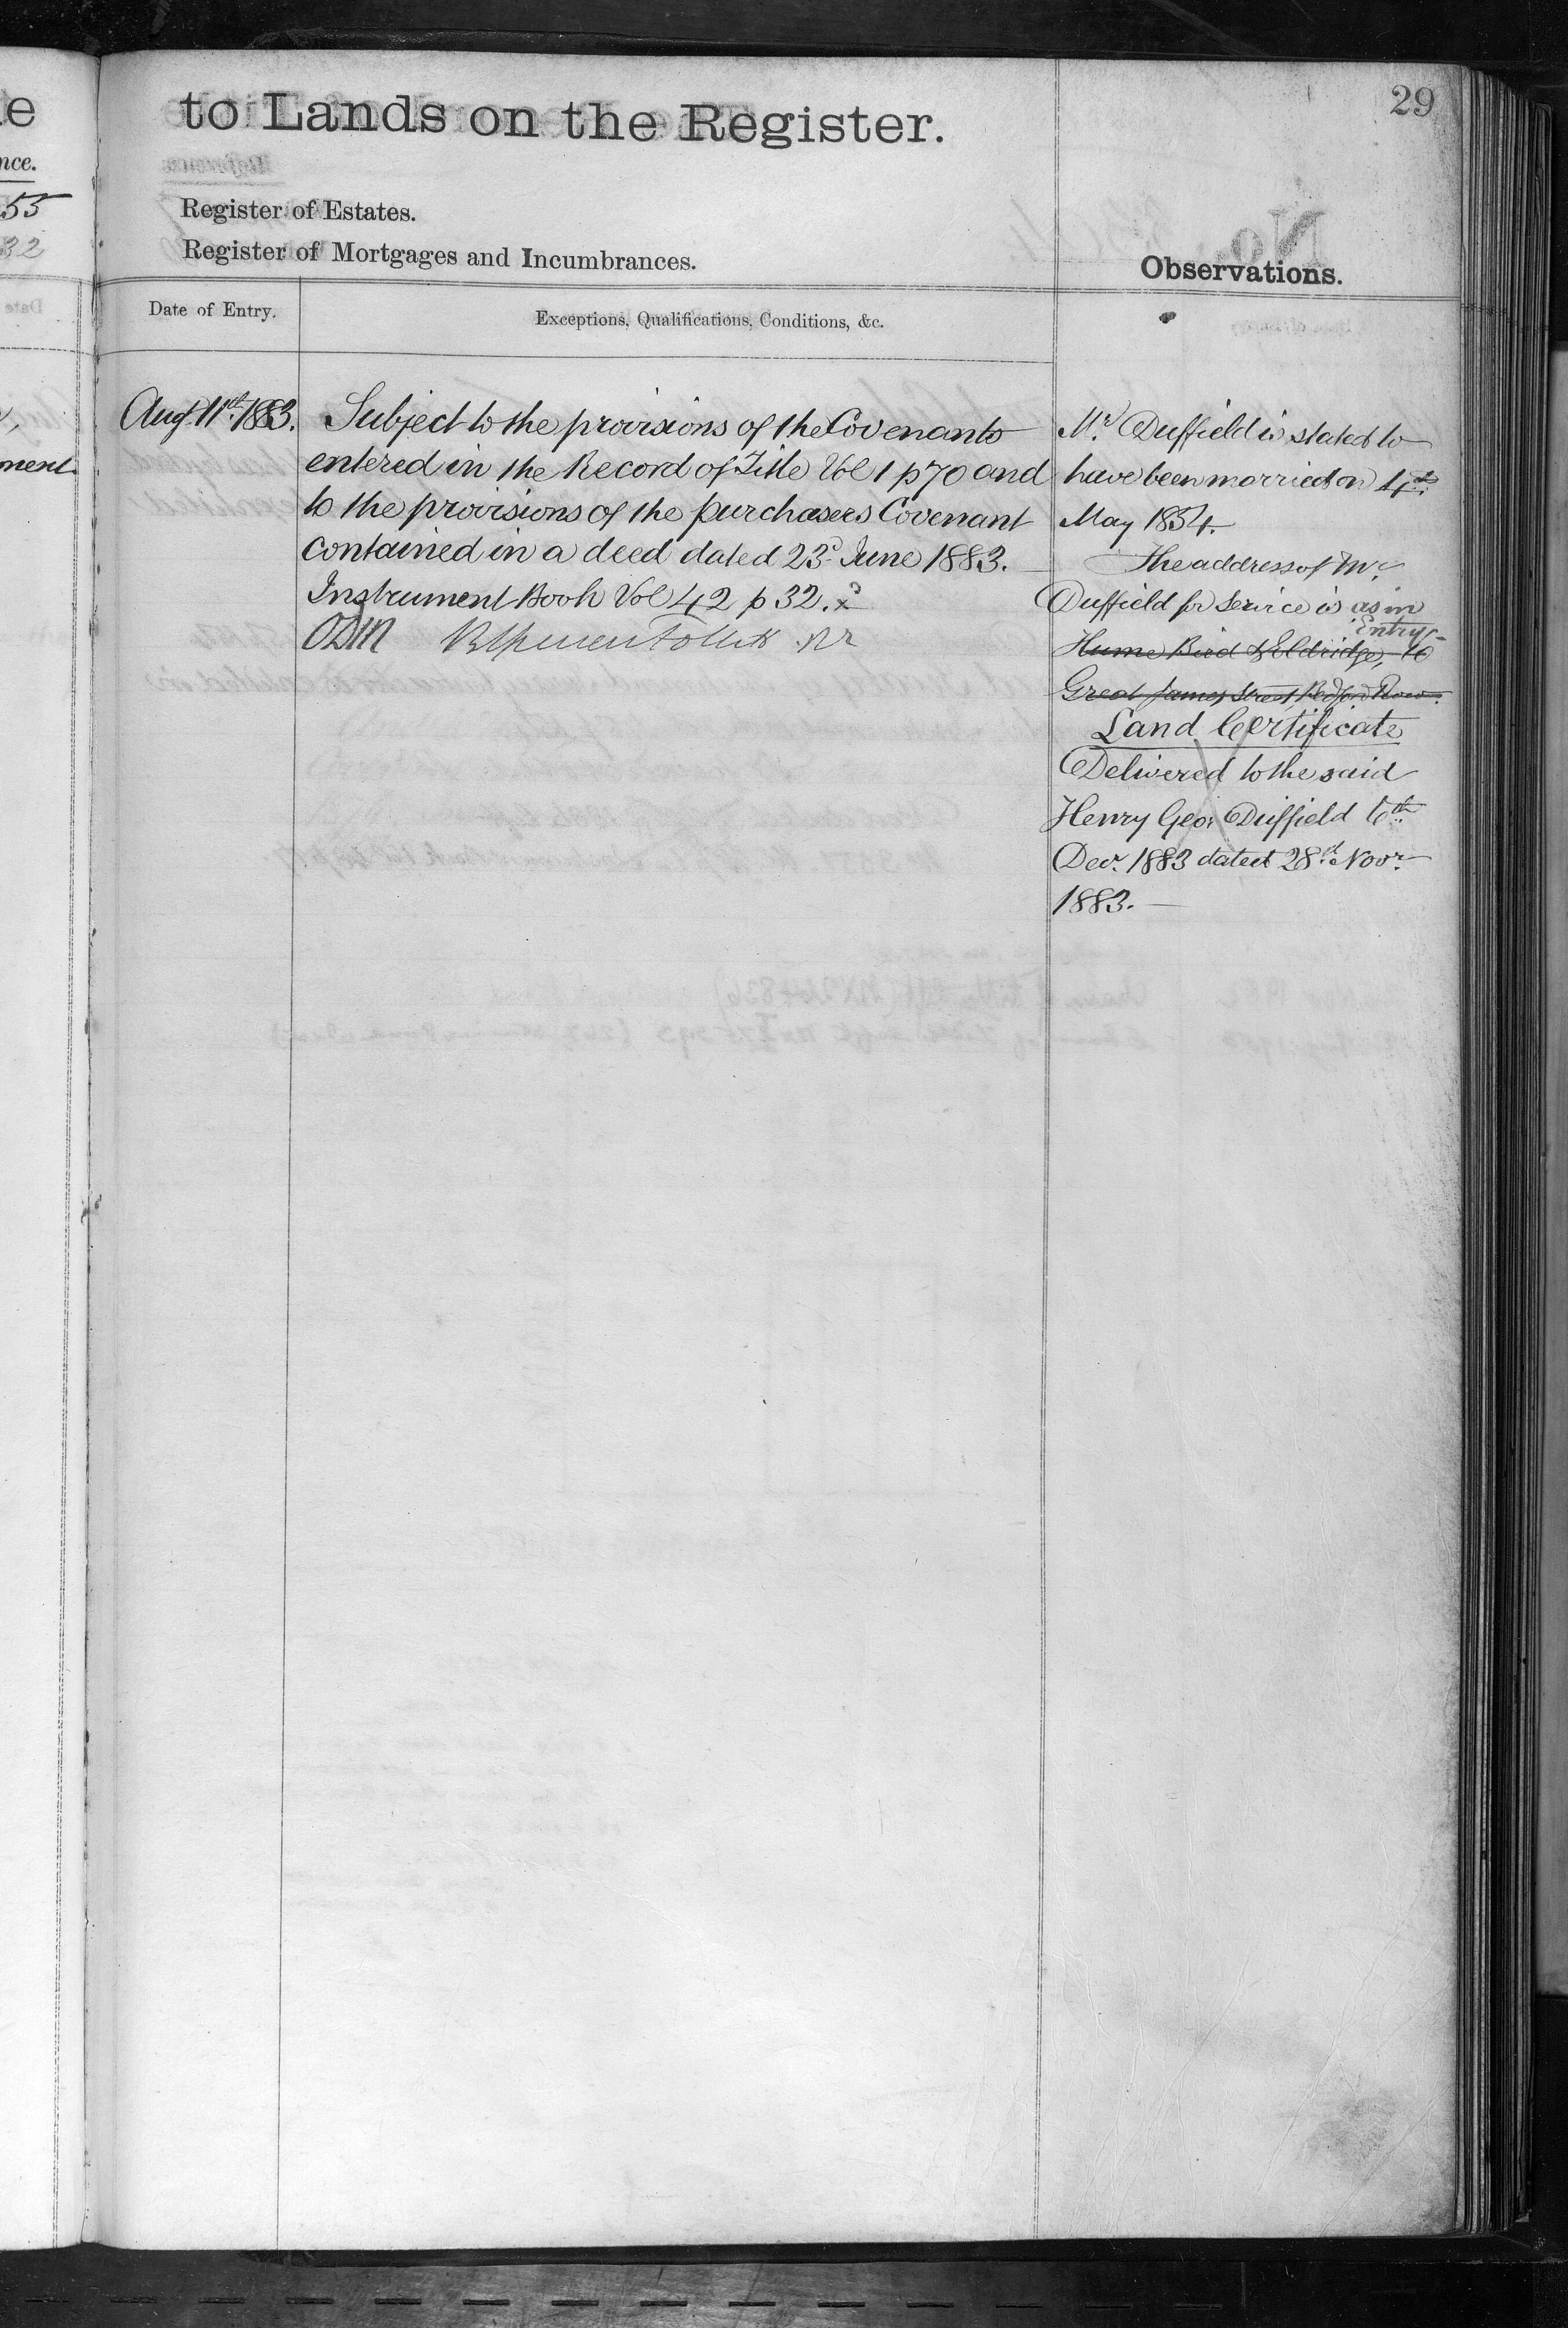 29
to Lands on the Register.
Register of Estates.
Register of Mortgages and Incumbrances.
Observations.
Date of Entry.
Exceptions, Qualifications, Conditions, &c.
Augt 11th 1883.
Subject to the provisions of the Covenants
entered in the Record of Title Vol 1 p70 and
to the provisions of the purchasers Covenant
contained in a deed dated 23rd June 1883.
Instrument Book Vol 42 p 32.
Mr Duffield is stated to
have been married on 4th
May 1854.
The address of Mr
Duffield for Service is as in
Entry
Hume Bird & Eldridge, 10
Great James Street Bedford Row.
Land Certificate
Delivered to the said
Henry Geo: Duffield 6th
Decr. 1883 dated 28th Novr
1883.
e
nce.
55
32
ment